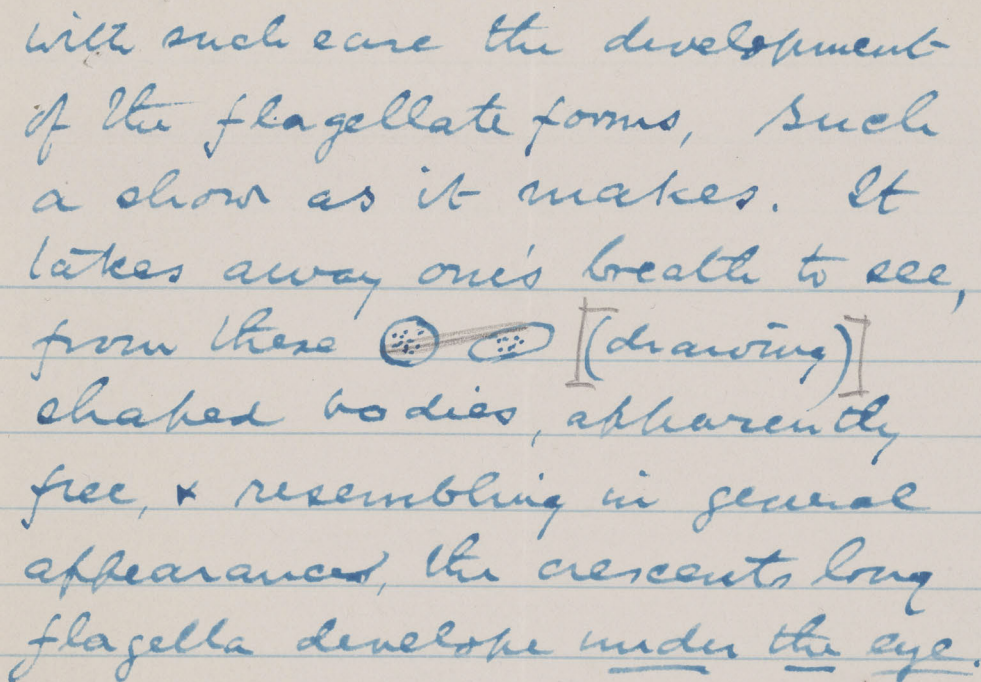 with such ease the development
of the flagellate forms, such
a show as it makes. It
takes away one's breath to see,
from these [(drawing)]
shaped bodies, apparently
free, & resembling in general
appearances, the crescents long
flagella develope under the eye.